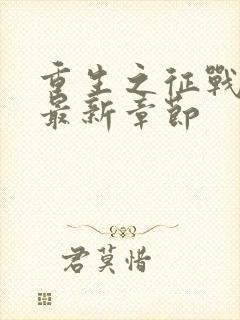 重生之征戰
最新章節
君莫惜